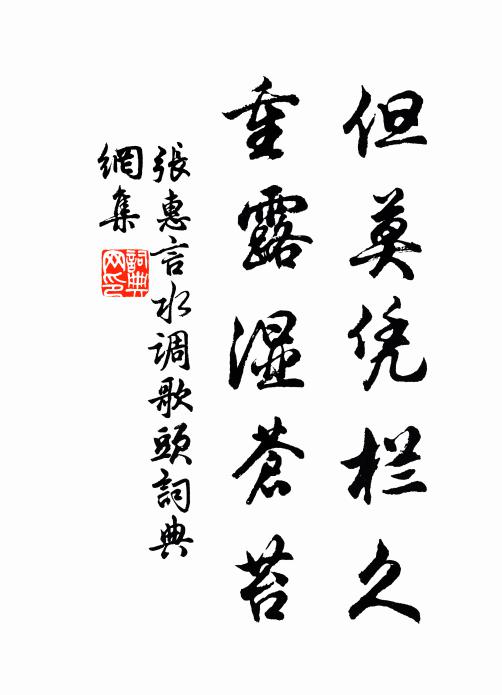 但莫凭栏久
重露湿蒼苔
張惠言水调歌頭詞典
網集
詞典网印